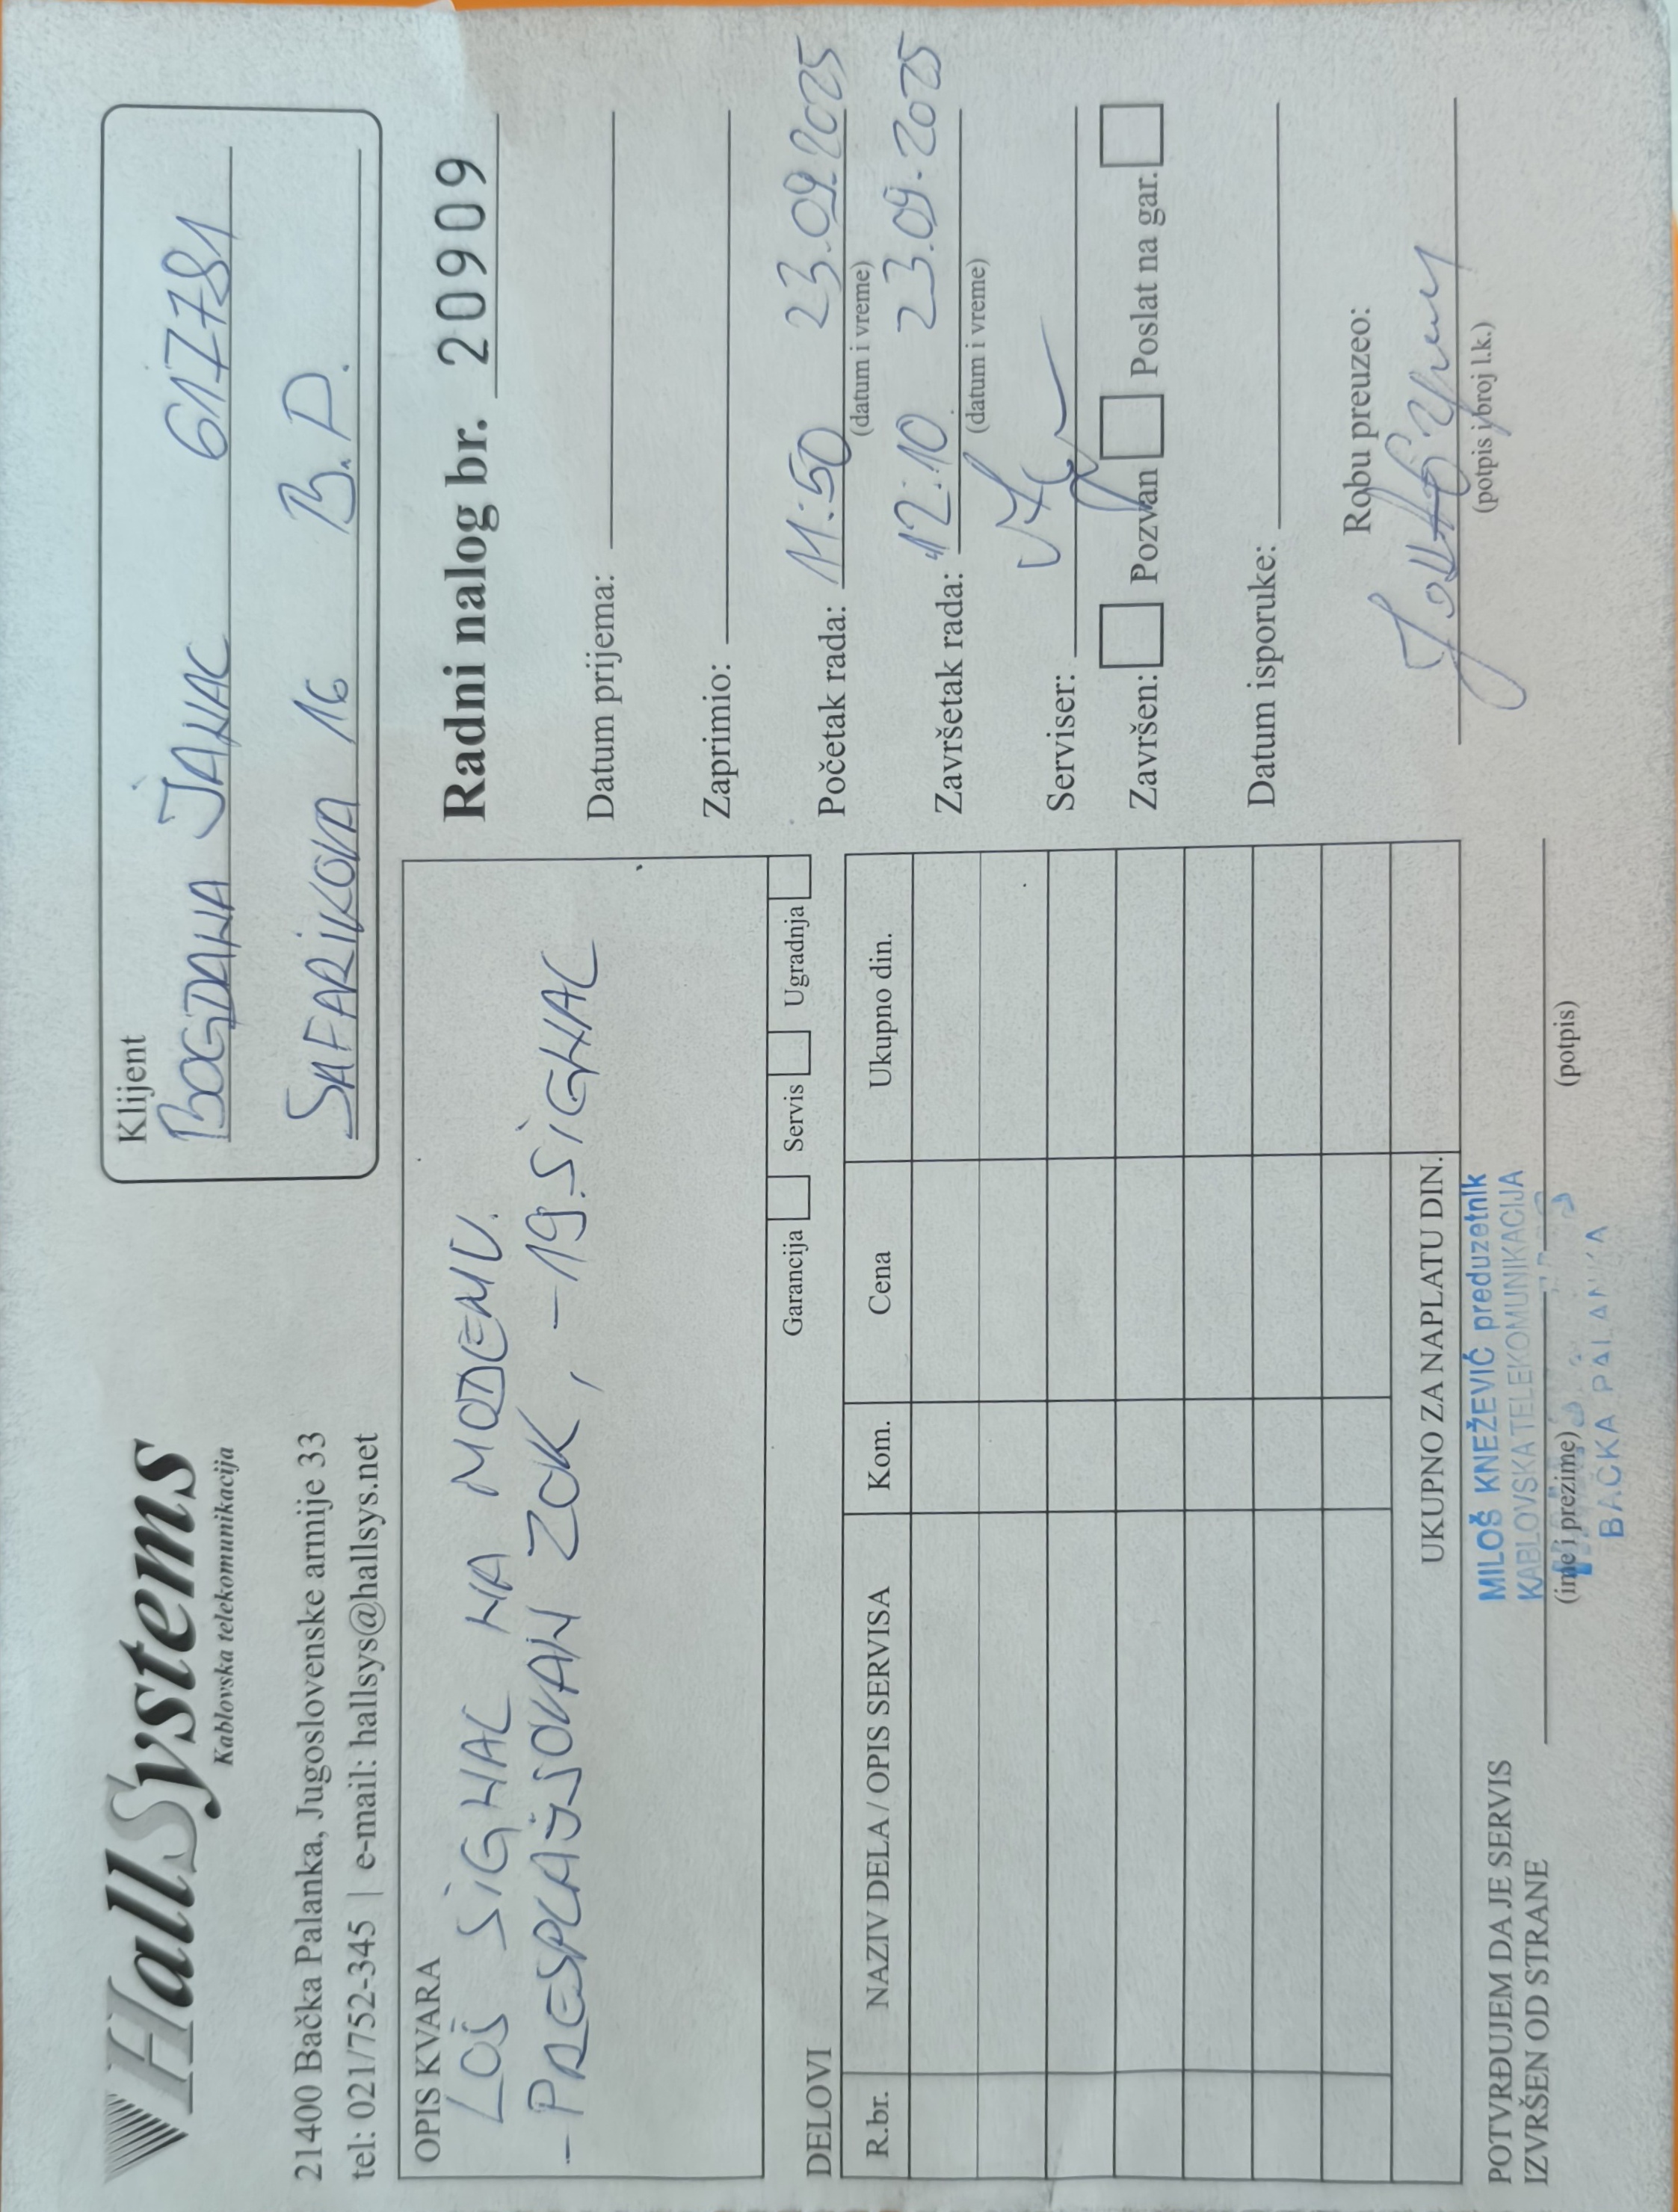 HallSystems
Kablovska telekomunikacija
21400 Bačka Palanka, Jugoslovenske armije 33
tel: 021/752-345 | e-mail: hallsys@hallsys.net
Klijent
BOGDANA JANAC 617781
ŠAFARIKOVA 16 B.P.
OPIS KVARA
LOŠ SIGNAL NA MODEMU.
- PRESPLAJSOVAN ZOK, -19. SIGNAL
Garancija Servis Ugradnja
Radni nalog br. 20909
Datum prijema:
Zaprimio:
Početak rada: 11:50 23.09.2025
(datum i vreme)
Završetak rada: 12:10 23.09.2025
(datum i vreme)
Serviser:
Završen: Pozvan Poslat na gar.
Datum isporuke:
Robu preuzeo:
(potpis i broj l.k.)
DELOVI
R.br. NAZIV DELA / OPIS SERVISA Kom. Cena Ukupno din.
UKUPNO ZA NAPLATU DIN.
POTVRĐUJEM DA JE SERVIS
IZVRŠEN OD STRANE
MILOŠ KNEŽEVIĆ preduzetnik
KABLOVSKA TELEKOMUNIKACIJA
BAČKA PALANKA
(ime i prezime) (potpis)